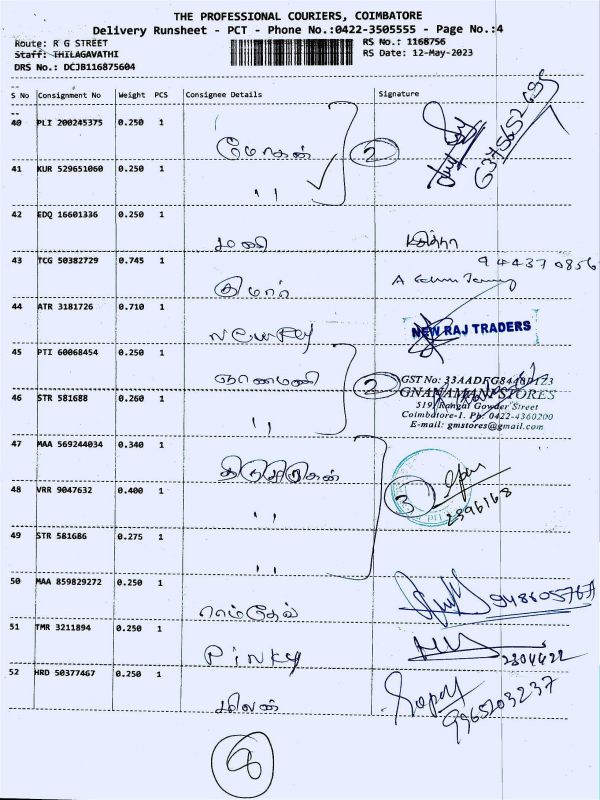 THE PROFESSIONAL COURIERS, COIMBATORE
Delivery Runsheet - PCT - Phone No.:0422-3505555 - Page No.:4
Route: R G STREET RS No.: 1168756
Staff: THILAGAVATHI RS Date: 12-May-2023
DRS No.: DCJB116875604
S No Consignment No Weight PCS Consignee Details Signature
40 PLI 200245375 0.250 1
மோகன் 2
6375652695
41 KUR 529651060 0.250 1
''
42 EDQ 16601336 0.250 1
மணி
43 TCG 50382729 0.745 1
குமார்
44 ATR 3181726 0.710 1
NEW RAJ TRADERS
45 PTI 60068454 0.250 1
ஞானமணி 2
GST No: 33AADFG8440P1Z3
46 STR 581688 0.260 1
GNANAMANI STORES
519, Rangai Gowder Street
'' Coimbatore-1. Ph: 0422-4360200
E-mail: gmstores@gmail.com
47 MAA 569244034 0.340 1
48 VRR 9047632 0.400 1
3
2396168
''
49 STR 581686 0.275 1
''
50 MAA 859829272 0.250 1
ராம்தேவ்
51 TMR 3211894 0.250 1
PINKY
2304422
52 HRD 50377467 0.250 1
9965203237
8